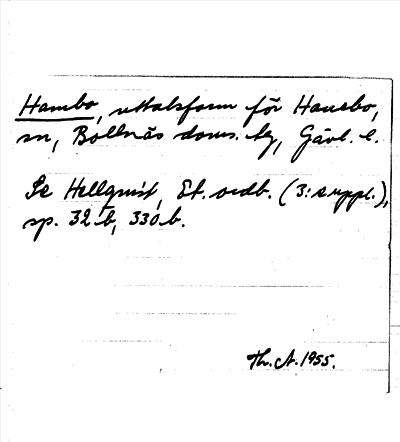 Hambo, uttalsform för Hanebo,
sn, Bollnäs doms. tg, Gävl. l.
Se Hellquist, Et. ordb. (3: suppl.),
sp. 32 b, 330 b.
Th. A. 1955.